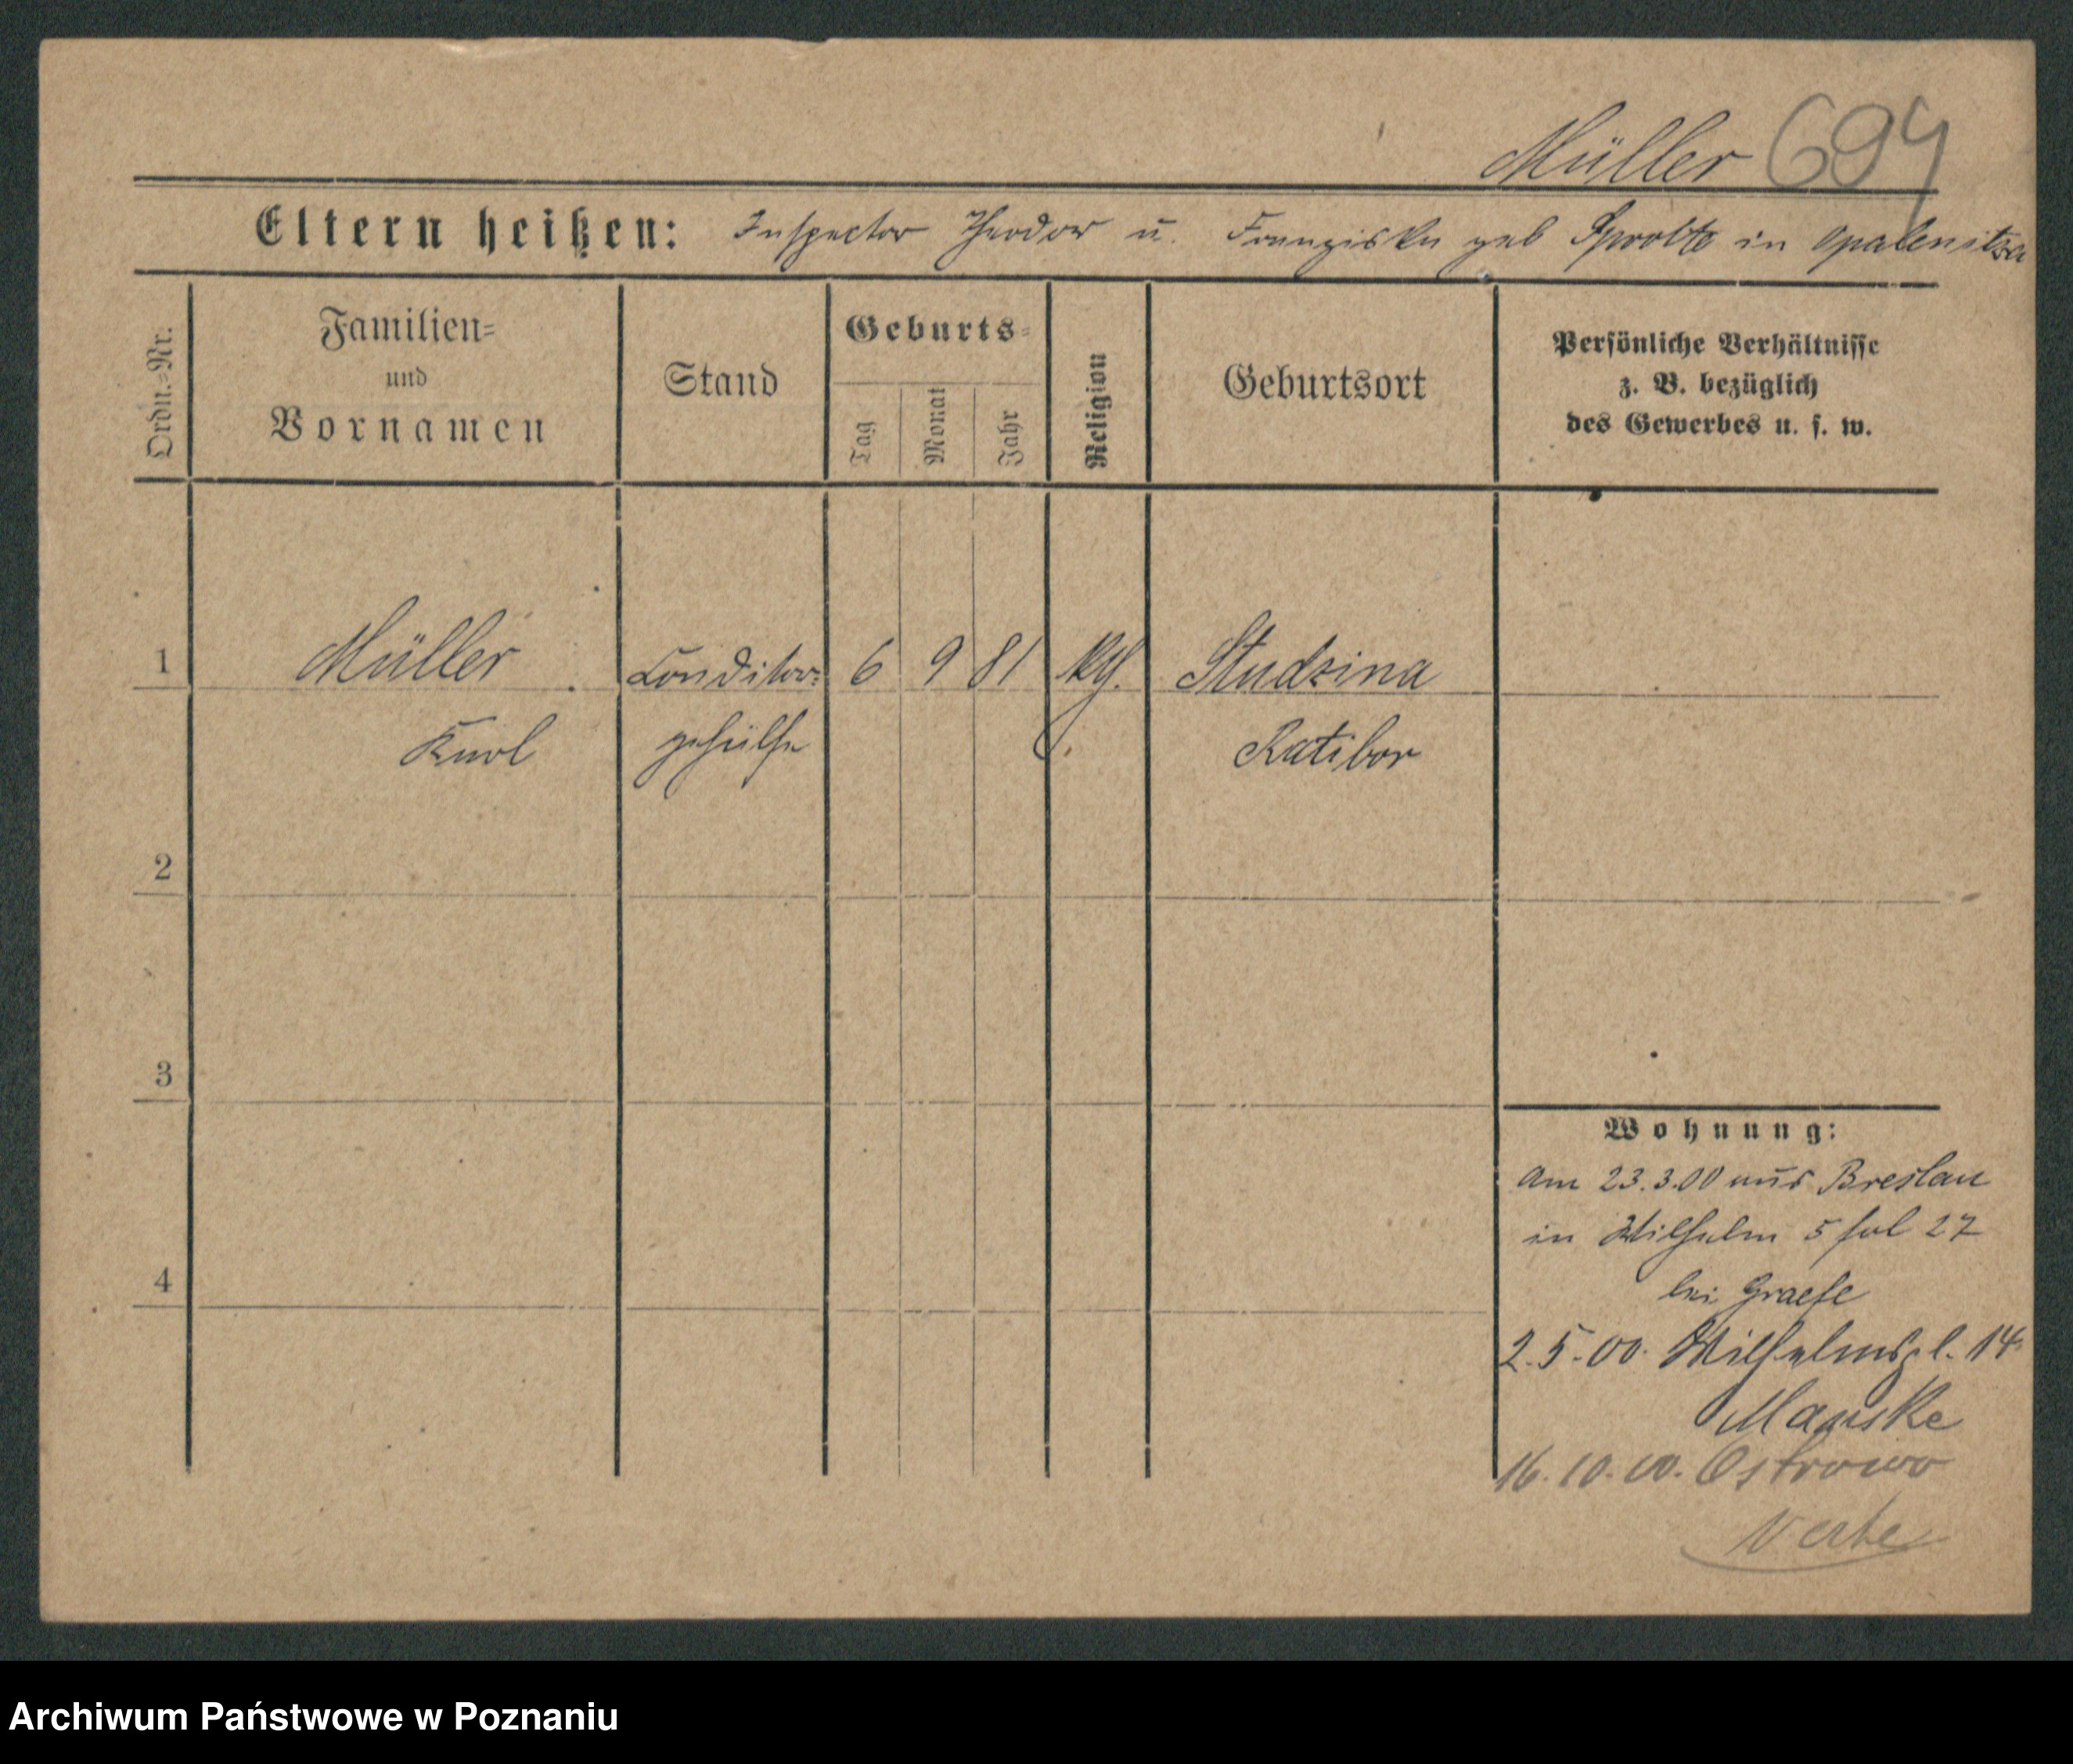 Müller 694
Eltern heißen: Inspector Theodor u. Franziska geb Sprotte in Opalenitza
Ordn.=Nr.
Familien=
und
Vornamen
Stand
Geburts=
Tag
Monat
Jahr
Religion
Geburtsort
Persönliche Verhältnisse
z. B. bezüglich
des Gewerbes u. s. w.
1 Müller Conditor= 6 9 81 Kth. Studzina
Karl gehülfe Ratibor
2
3
4
Wohnung:
Am 23.3.00 aus Breslau
in Wilhelm 27
bei Graefe
2.5.00. Wilhelmspl. 14
Manske
16.10.00. Ostrowo
Archiwum Państwowe w Poznaniu